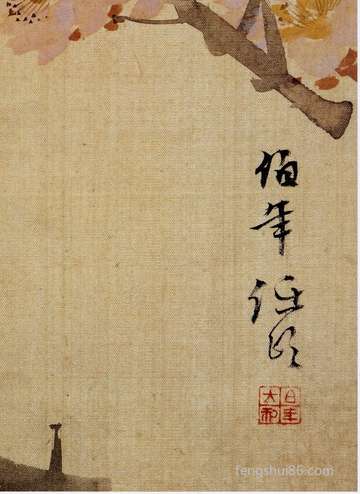 伯年任颐
fengshui86.com